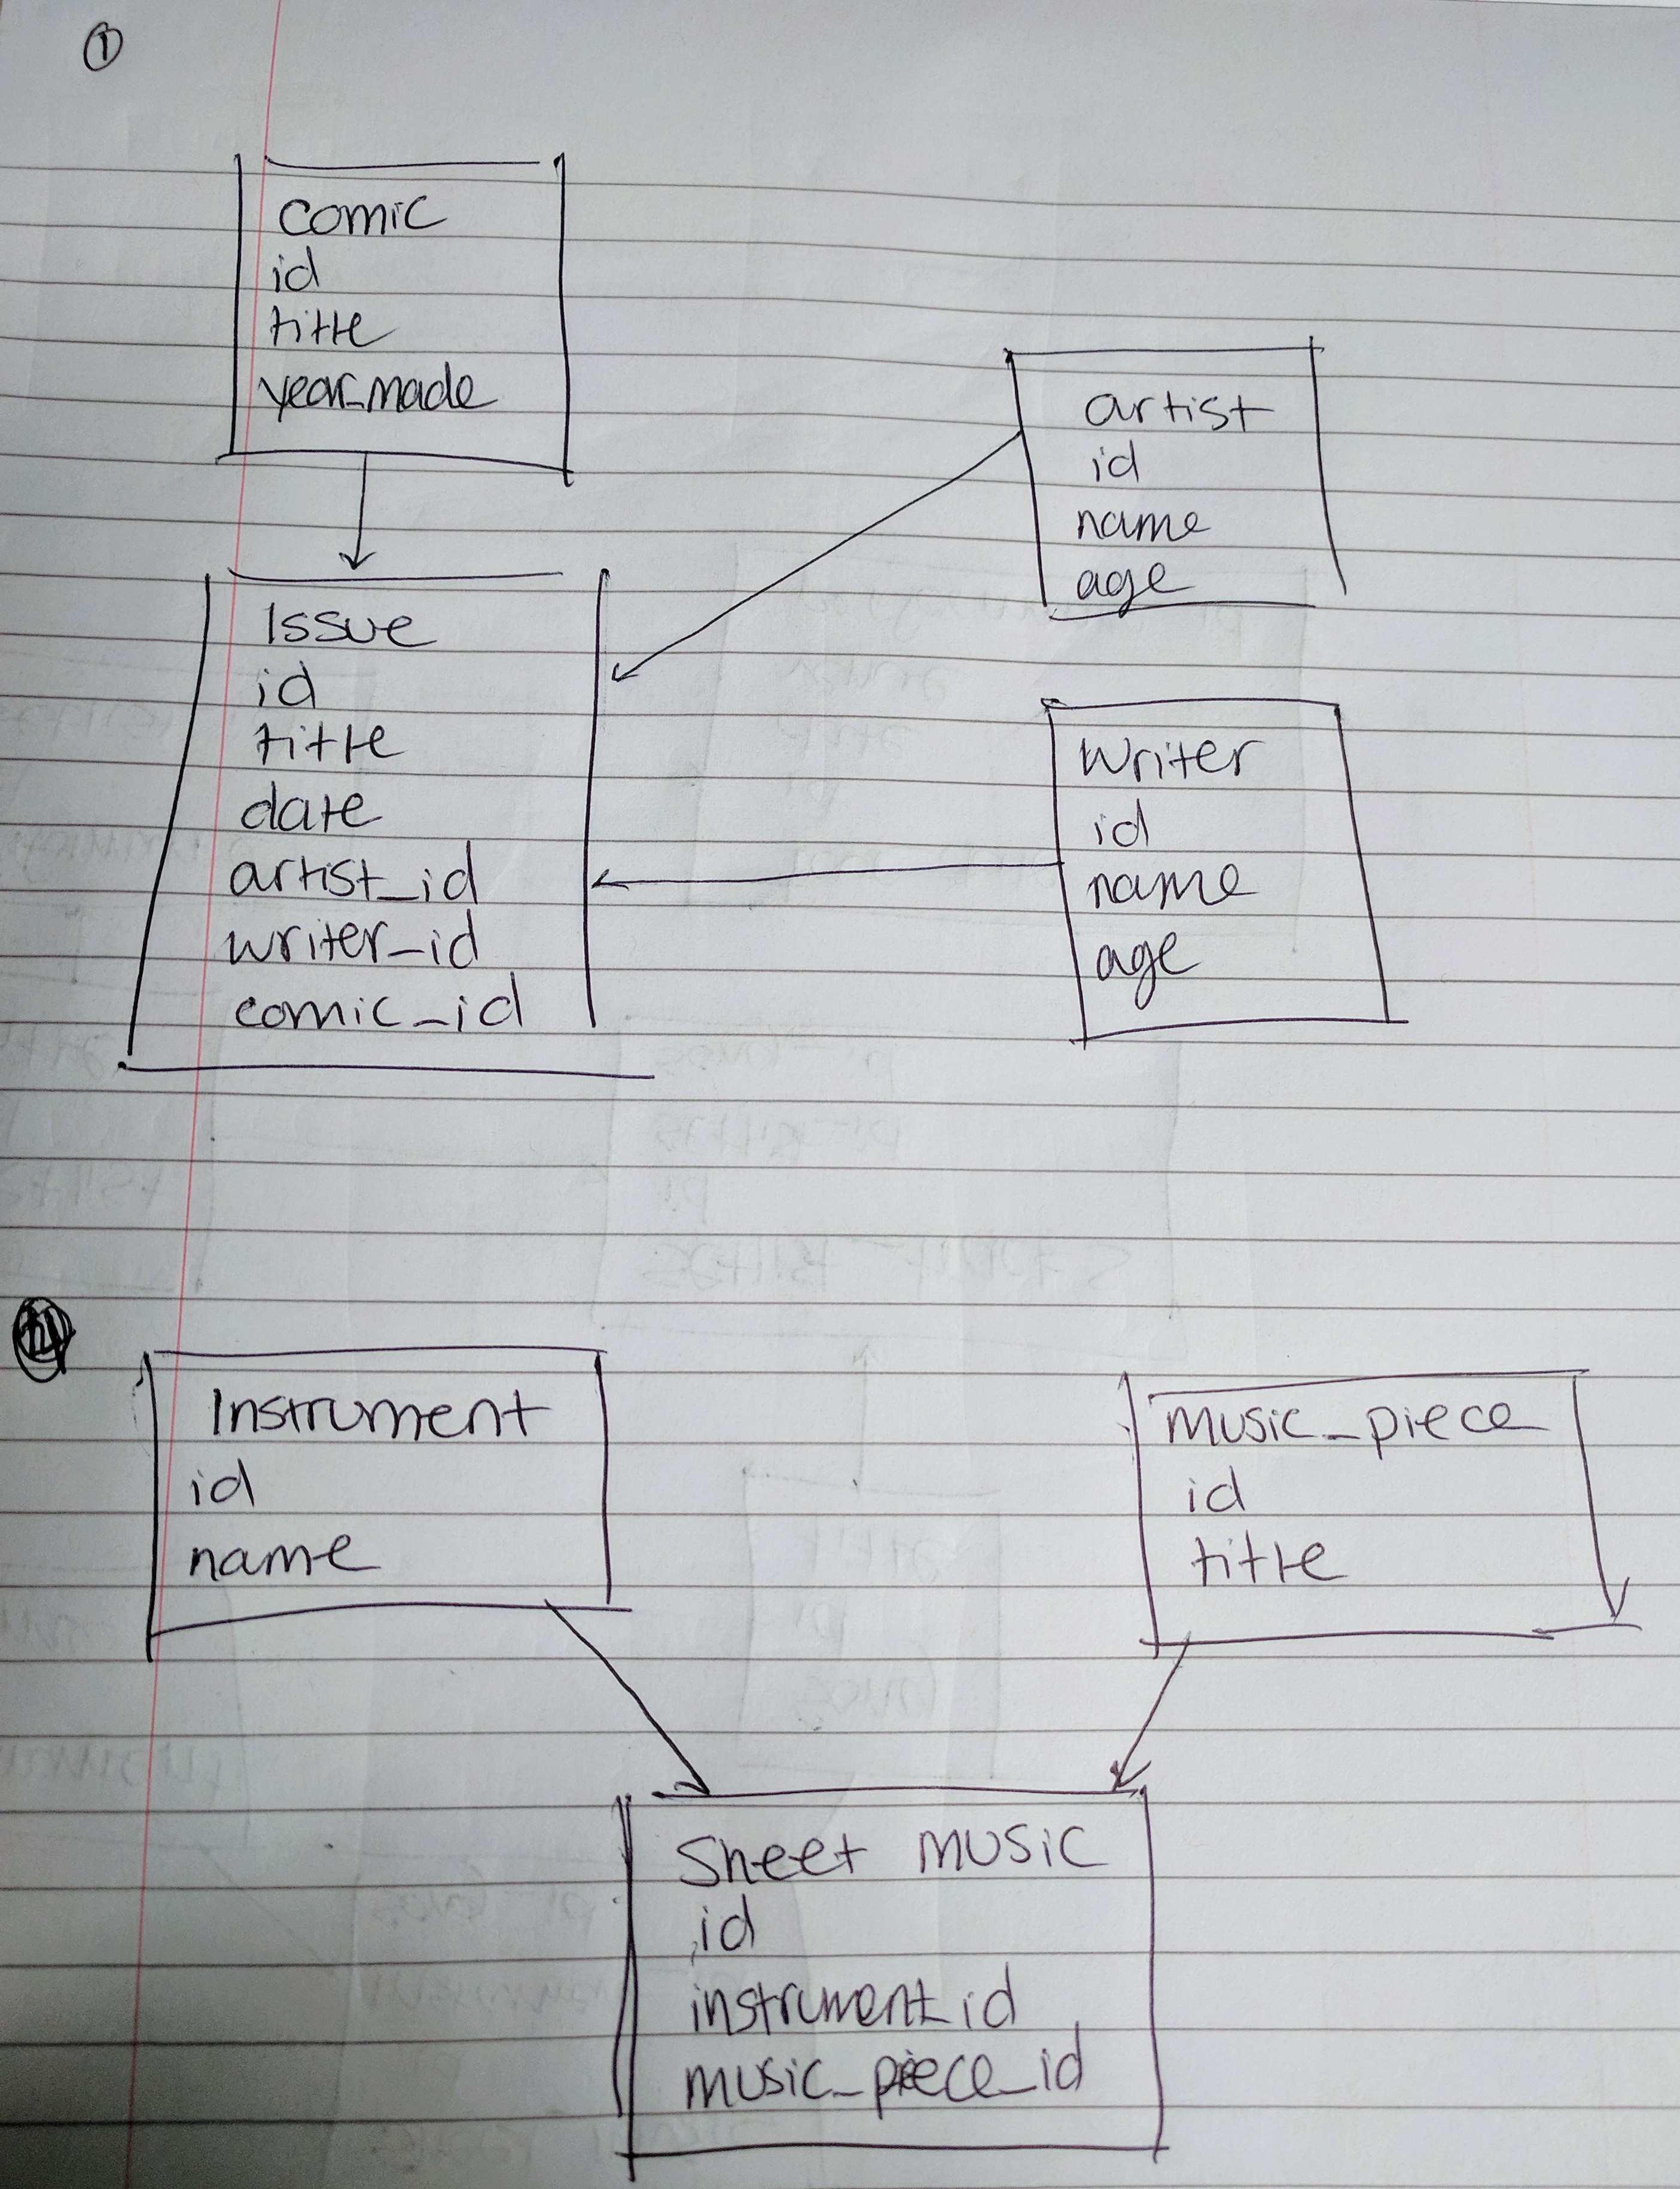 1
comic
id
title
year_made
artist
id
name
age
Issue
id
title
date
artist_id
writer_id
comic_id
writer
id
name
age
Instrument
id
name
music_piece
id
title
Sheet music
id
instrument_id
music_piece_id